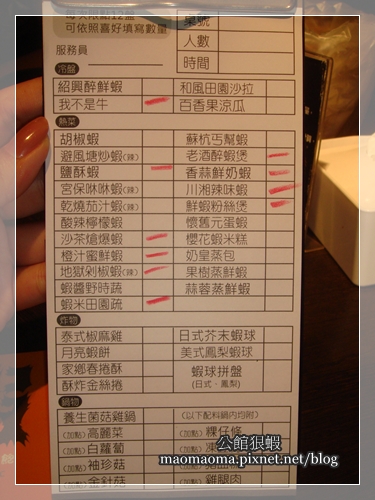 每次限點12個
可依照喜好填寫數量
桌號
人數
服務員
時間
冷盤
紹興醉鮮蝦 和風田園沙拉
我不是牛 百香果涼瓜
熱菜
胡椒蝦 蘇杭丐幫蝦
避風塘炒蝦(辣) 老酒醉蝦煲
鹽酥蝦 香蒜鮮奶蝦
宮保咻咻蝦(辣) 川湘辣味蝦
乾燒茄汁蝦(辣) 鮮蝦粉絲煲
酸辣檸檬蝦 懷舊元蛋蝦
沙茶熗爆蝦 櫻花蝦米糕
橙汁蜜鮮蝦 奶皇蒸包
地獄剁椒蝦(辣) 果樹蒸鮮蝦
蝦醬野時蔬 蒜蓉蒸鮮蝦
蝦米田園疏
炸物
泰式椒麻雞 日式芥末蝦球
月亮蝦餅 美式鳳梨蝦球
家鄉春捲酥 蝦球拼盤
酥炸金絲捲 (日式、鳳梨)
鍋物
養生菌菇雞鍋 (以下配料鍋內均附)
(加點)高麗菜 (加點)粿仔條
(加點)白蘿蔔 (加點)凍
(加點)袖珍菇 (加點)
(加點)金針菇 (加點)雞腿肉
公館狠蝦
maomaoma.pixnet.net/blog